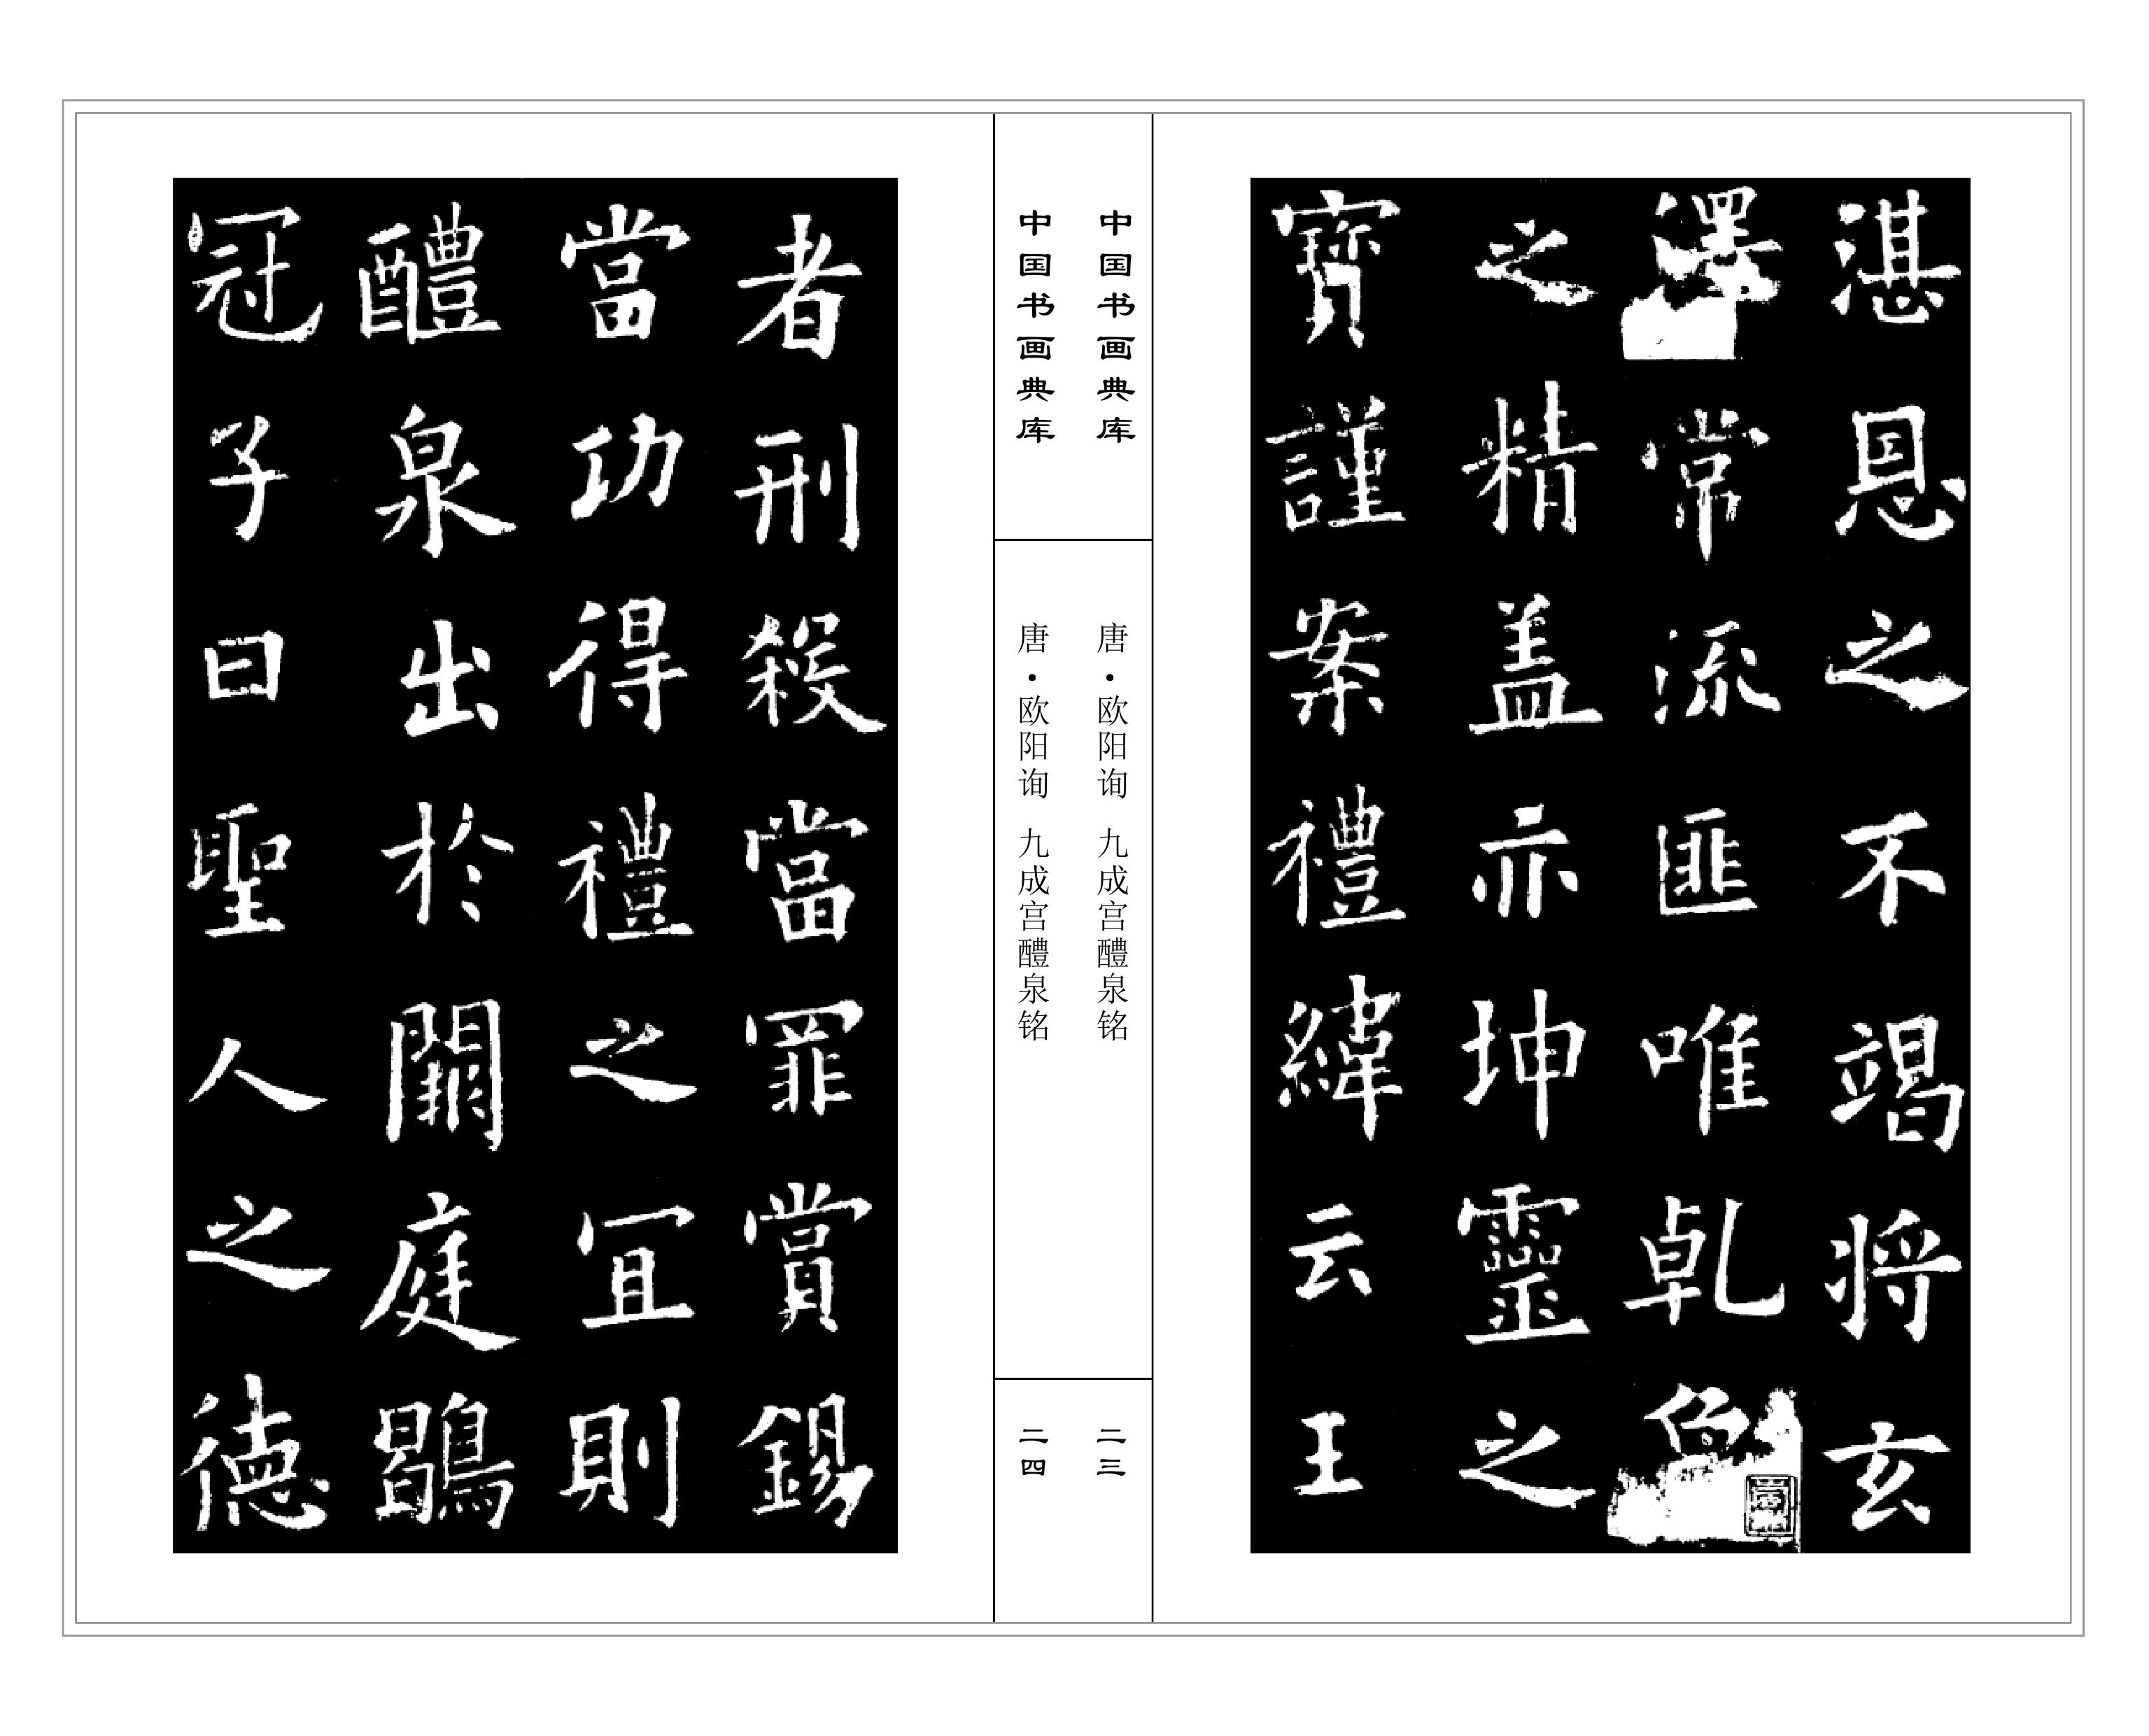 湛恩之不竭将玄
澤常流匪唯乾象
之精盖亦坤靈之
寶謹案禮緯云王
中国书画典库
唐·欧阳询 九成宫醴泉铭
二三
中国书画典库
唐·欧阳询 九成宫醴泉铭
二四
者刑殺當罪賞錫
當功得禮之宜則
醴泉出於闕庭鶡
冠子曰聖人之德